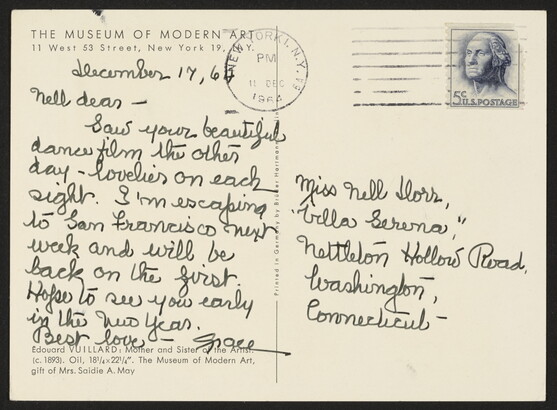 THE MUSEUM OF MODERN ART
11 West 53 Street, New York 19, N.Y.
December 17, 64
Nell dear –
Saw your beautiful
dance film the other
day – lovelier on each
sight. I'm escaping
to San Francisco next
week and will be
back on the first.
Hope to see you early
in the New Year.
Best love – Grace
Edouard VUILLARD: Mother and Sister of the Artist.
(c. 1893). Oil, 18¼×22¼". The Museum of Modern Art,
gift of Mrs. Saidie A. May
NEW YORK 1, N.Y.
PM
DEC
1964
5¢ U.S. POSTAGE
Miss Nell Dorr,
"Villa Serena,"
Nettleton Hollow Road,
Washington,
Connecticut –
Printed in Germany by Brüder Hartmann